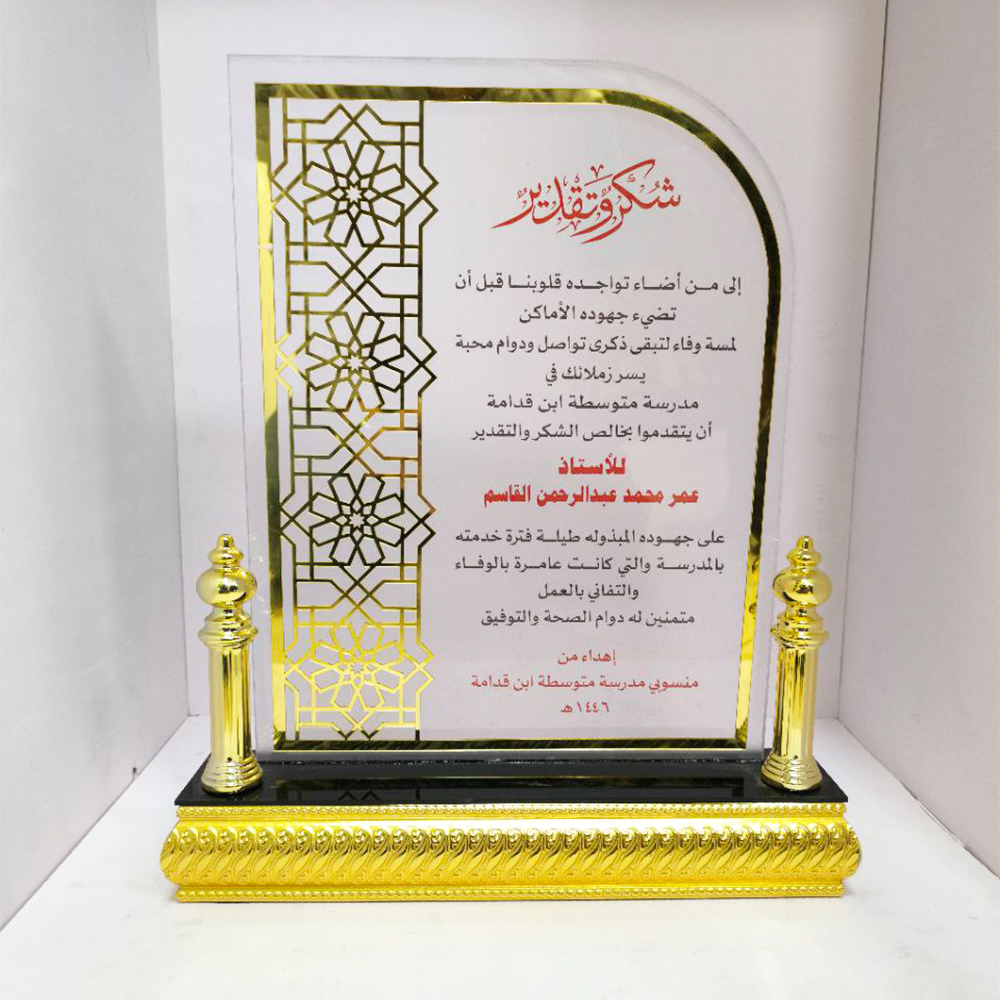 شكر وتقدير
إلى من أضاء تواجده قلوبنا قبل أن
تضيء جهوده الأماكن
لمسة وفاء لتبقى ذكرى تواصل ودوام محبة
يسر زملائك في
مدرسة متوسطة ابن قدامة
أن يتقدموا بخالص الشكر والتقدير
للأستاذ
عمر محمد عبدالرحمن القاسم
على جهوده المبذوله طيلة فترة خدمته
بالمدرسة والتي كانت عامرة بالوفاء
والتفاني بالعمل
متمنين له دوام الصحة والتوفيق
إهداء من
منسوبي مدرسة متوسطة ابن قدامة
١٤٤٦هـ